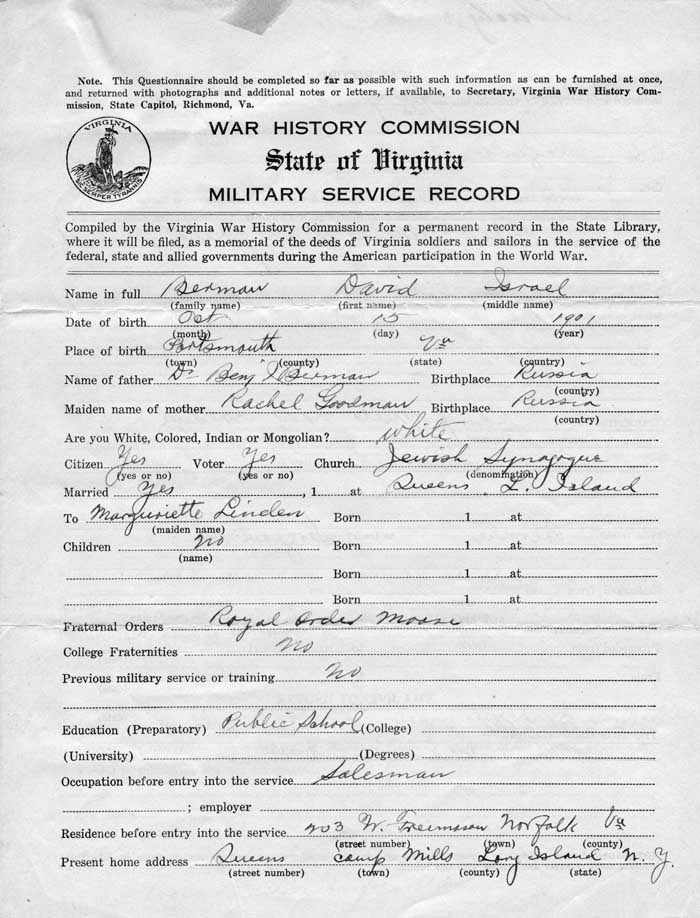 Note. This Questionnaire should be completed so far as possible with such information as can be furnished at once,
and returned with photographs and additional notes or letters, if available, to Secretary, Virginia War History Com-
mission, State Capitol, Richmond, Va.
VIRGINIA
SIC SEMPER TYRANNIS
WAR HISTORY COMMISSION
State of Virginia
MILITARY SERVICE RECORD
Compiled by the Virginia War History Commission for a permanent record in the State Library,
where it will be filed, as a memorial of the deeds of Virginia soldiers and sailors in the service of the
federal, state and allied governments during the American participation in the World War.
Name in full Berman David Israel
(family name) (first name) (middle name)
Date of birth Oct 15 1901
(month) (day) (year)
Place of birth Portsmouth Va
(town) (county) (state) (country)
Name of father Dr Benj Berman Birthplace Russia
(country)
Maiden name of mother Rachel Goodman Birthplace Russia
(country)
Are you White, Colored, Indian or Mongolian? White
Citizen Yes Voter Yes Church Jewish Synagogue
(yes or no) (yes or no) (denomination)
Married Yes , 1 at Queens L. Island
To Marguriette Linden Born 1 at
(maiden name)
Children No Born 1 at
(name)
Born 1 at
Born 1 at
Fraternal Orders Royal Order Moose
College Fraternities No
Previous military service or training No
Education (Preparatory) Public School (College)
(University) (Degrees)
Occupation before entry into the service Salesman
; employer
Residence before entry into the service 203 W. Freemason Norfolk Va
(street number) (town) (county)
Present home address Queens Camp Mills Long Island N. Y.
(street number) (town) (county) (state)